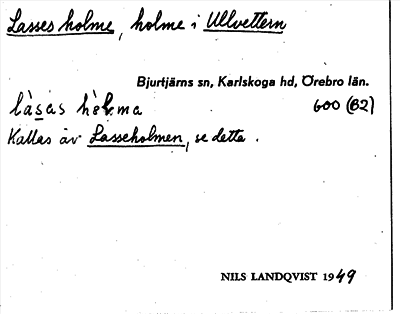 Lasses holme, holme i Ullvettern
Bjurtjärns sn, Karlskoga hd, Örebro län.
låsas hòlma 600 (B2)
Kallas äv Lasseholmen, se detta.
NILS LANDQVIST 1949